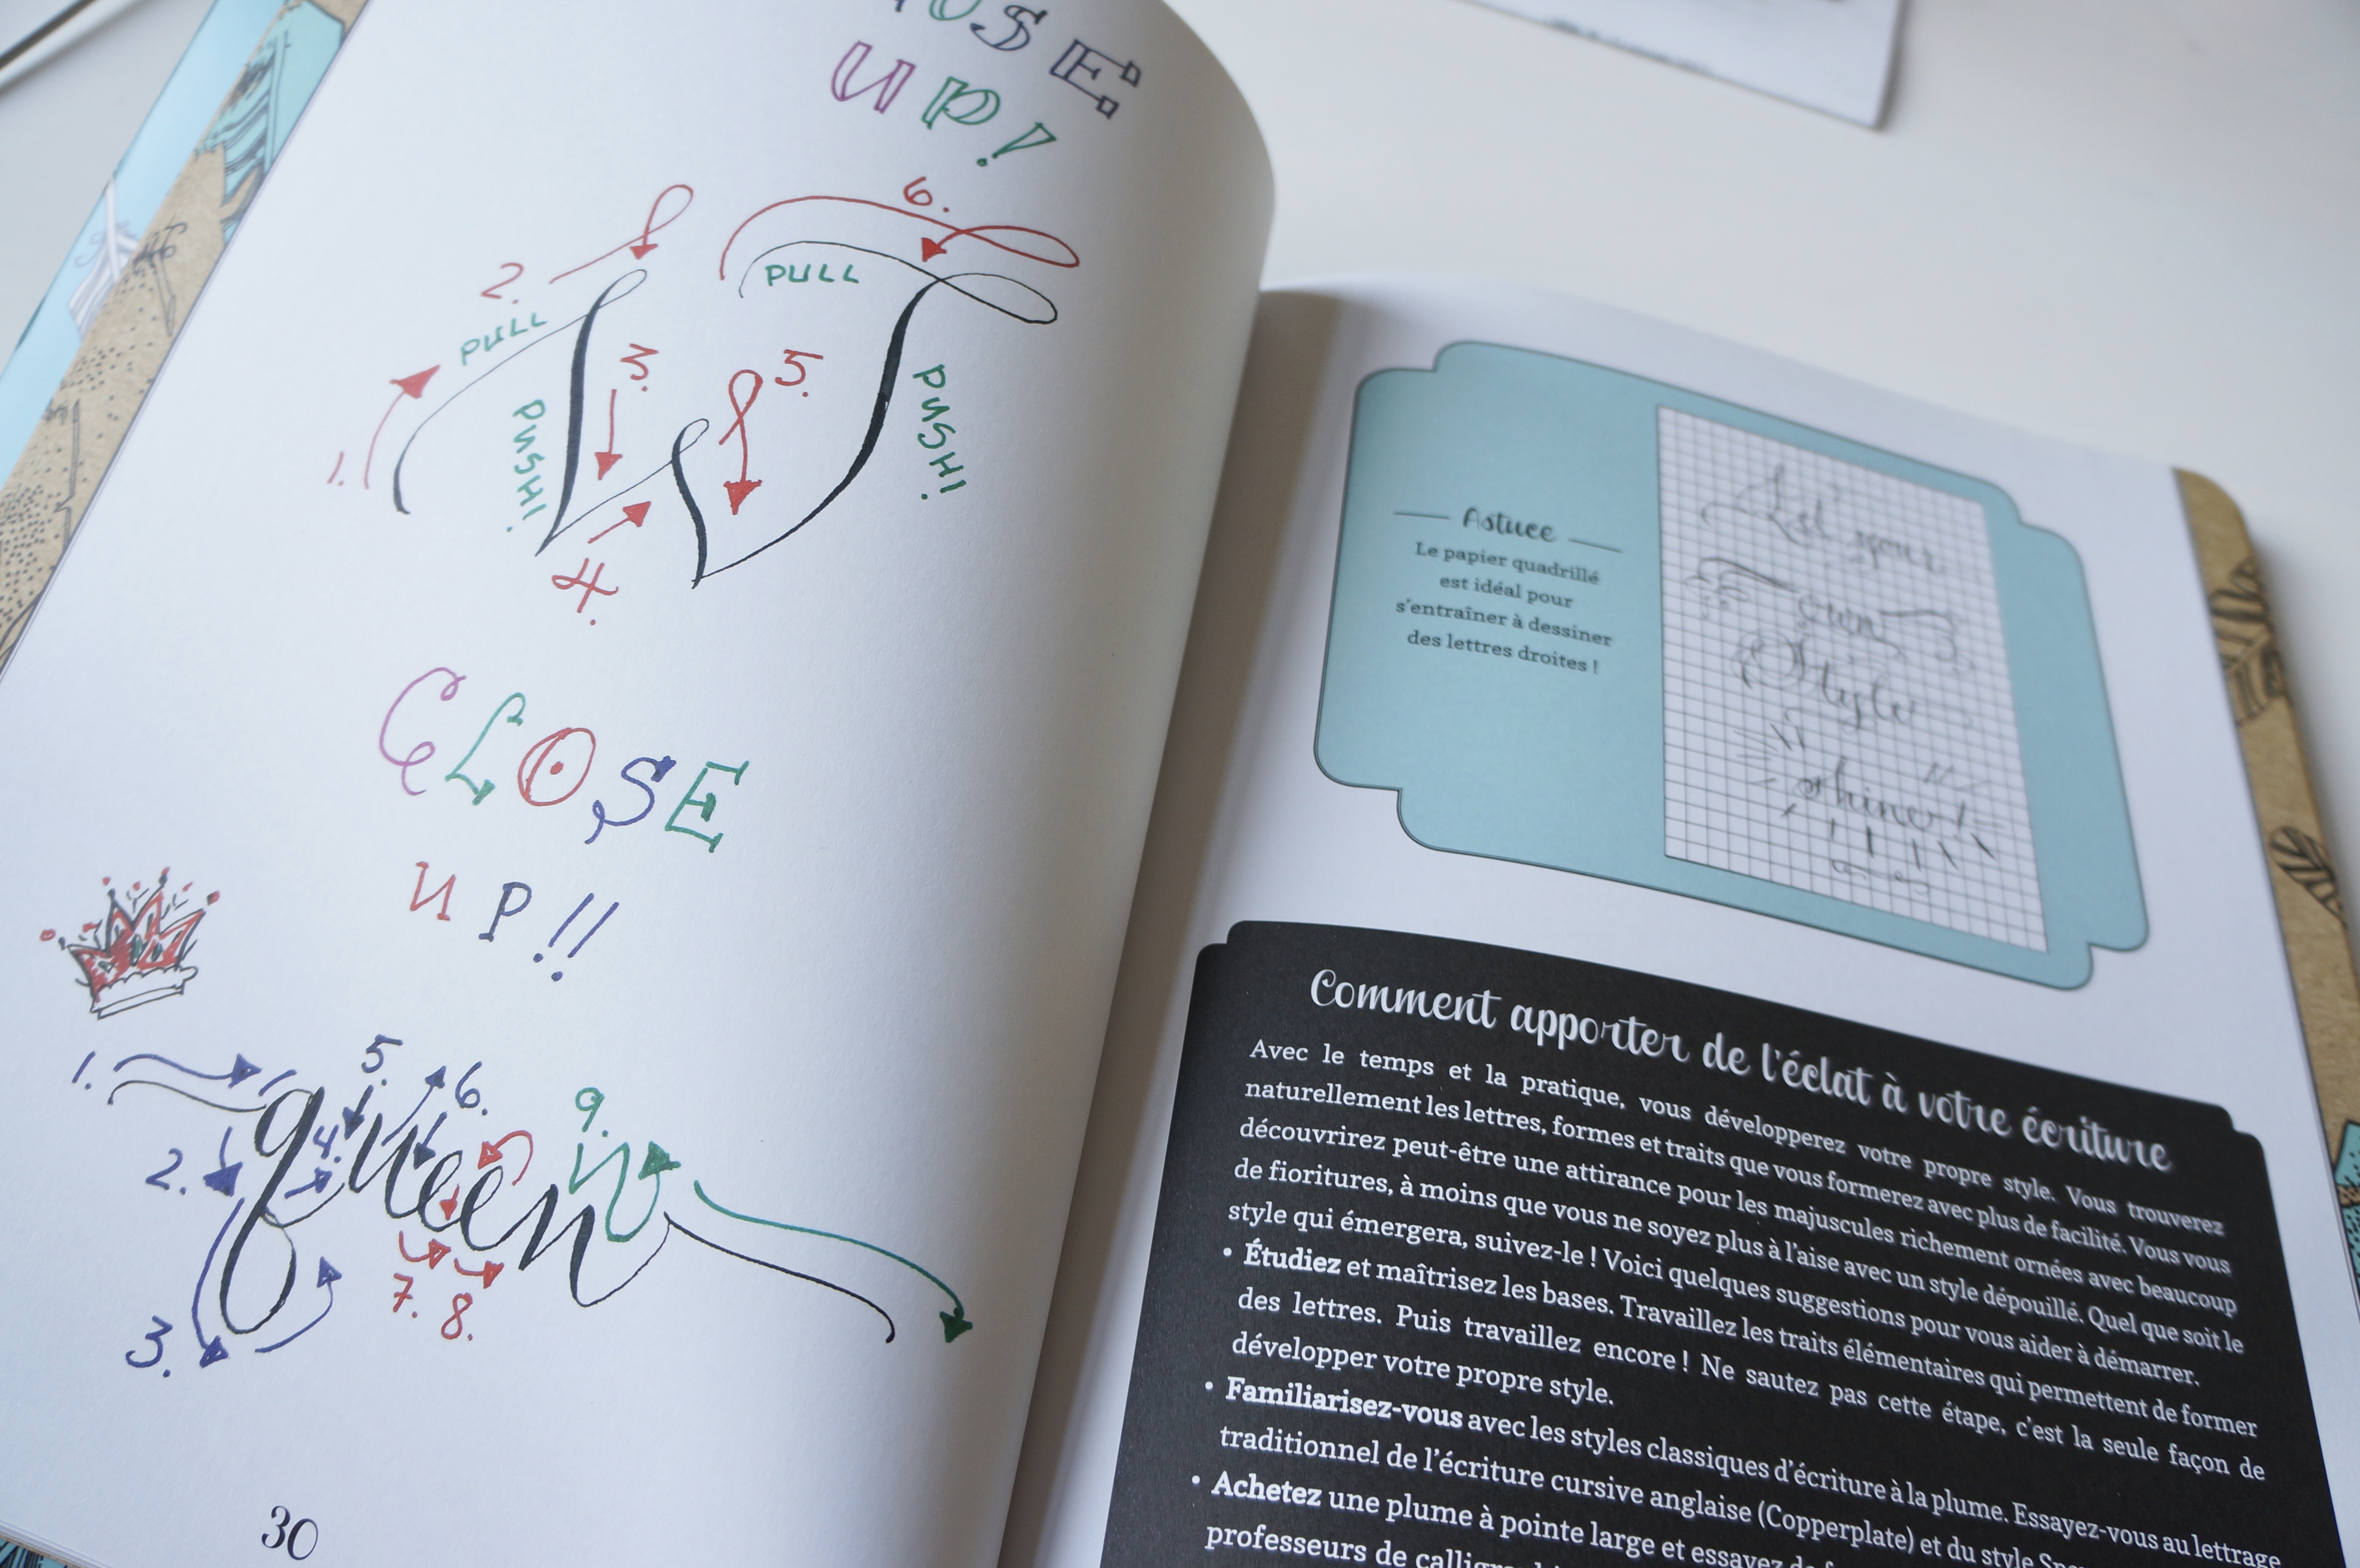 OSE
UP!
6.
PULL
2.
PULL
3.
5.
PUSH!
PUSH!
1.
4.
CLOSE
UP!!
1.
5.
6.
9.
n
2.
4.
queen
7.
8.
3.
30
Astuce
Le papier quadrillé
est idéal pour
s'entraîner à dessiner
des lettres droites !
Let your
own
style
shine!
Comment apporter de l'éclat à votre écriture
Avec le temps et la pratique, vous développerez votre propre style. Vous trouverez
naturellement les lettres, formes et traits que vous formerez avec plus de facilité. Vous vous
découvrirez peut-être une attirance pour les majuscules richement ornées avec beaucoup
de fioritures, à moins que vous ne soyez plus à l'aise avec un style dépouillé. Quel que soit le
style qui émergera, suivez-le ! Voici quelques suggestions pour vous aider à démarrer.
• Étudiez et maîtrisez les bases. Travaillez les traits élémentaires qui permettent de former
des lettres. Puis travaillez encore ! Ne sautez pas cette étape, c'est la seule façon de
développer votre propre style.
• Familiarisez-vous avec les styles classiques d'écriture à la plume. Essayez-vous au lettrage
traditionnel de l'écriture cursive anglaise (Copperplate) et du style
• Achetez une plume à pointe large et essayez de
professeurs de